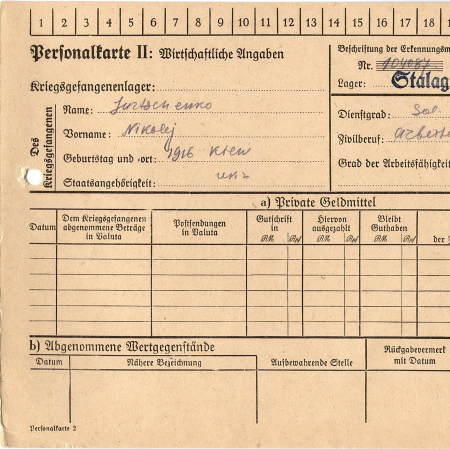 1 2 3 4 5 6 7 8 9 10 11 12 13 14 15 16 17 18
Personalkarte II: Wirtschaftliche Angaben
Beschriftung der Erkennungsm
Nr. 104087
Kriegsgefangenenlager:
Lager: Stalag
Des Kriegsgefangenen
Name: Jurtschenko
Dienstgrad: Sol.
Vorname: Nikolej
Zivilberuf: Arbeite
Geburtstag und -ort: 1916 Kiew
Grad der Arbeitsfähigkeit
Staatsangehörigkeit:
a) Private Geldmittel
Datum
Dem Kriegsgefangenen abgenommene Beträge in Valuta
Postsendungen in Valuta
Gutschrift in RM Rpf
Hiervon ausgezahlt RM Rpf
Bleibt Guthaben RM Rpf
der
b) Abgenommene Wertgegenstände
Datum
Nähere Bezeichnung
Aufbewahrende Stelle
Rückgabevermerk mit Datum
Personalkarte 2